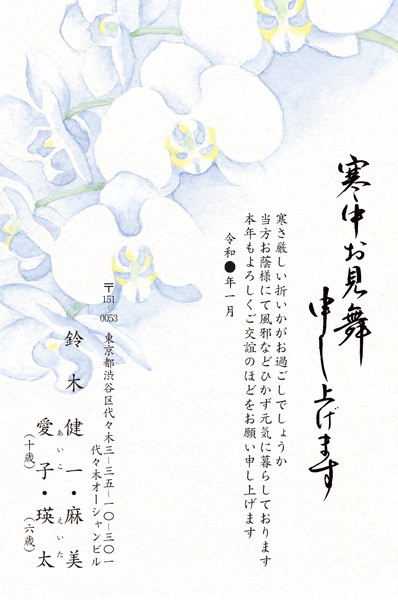 寒中お見舞
申し上げます
寒さ厳しい折いかがお過ごしでしょうか
当方お蔭様にて風邪などひかず元気に暮らしております
本年もよろしくご交誼のほどをお願い申し上げます
令和●年一月
〒151-0053
東京都渋谷区代々木三-三五-一〇-三〇一
代々木オーシャンビル
鈴木 健一・麻美
愛子・瑛太
あいこ えいた
(十歳) (六歳)